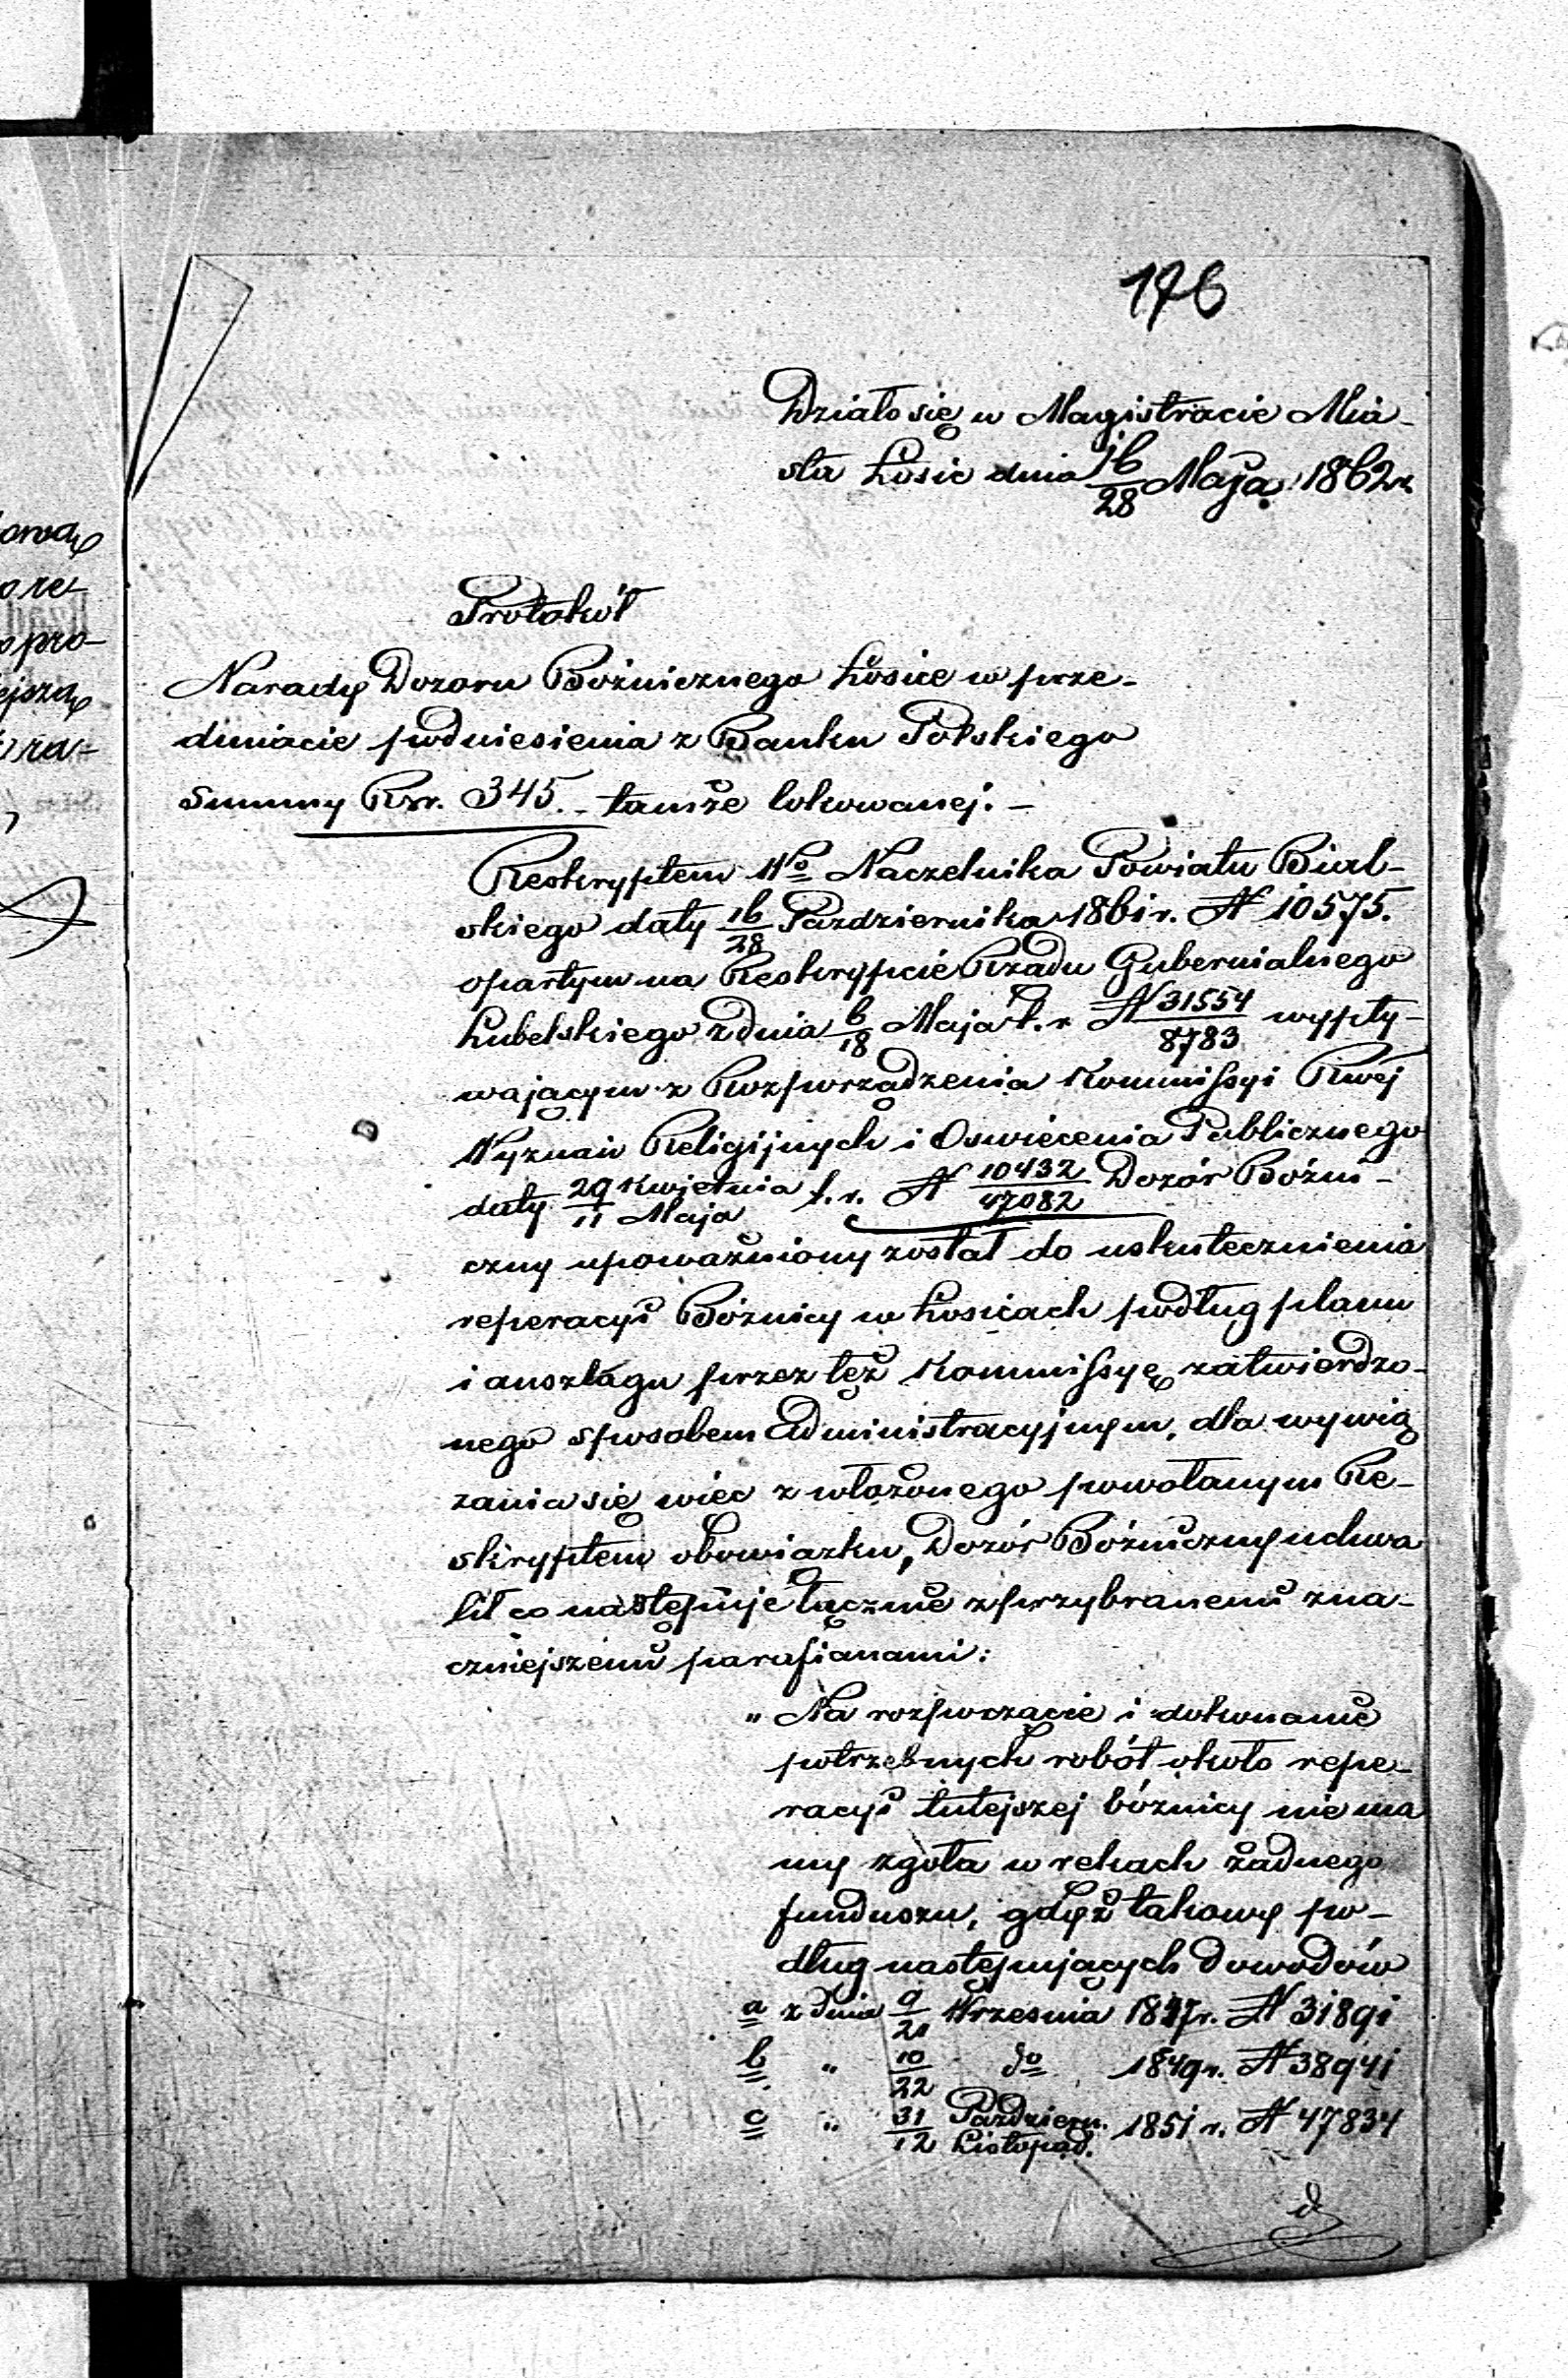 176
Działo się w Magistracie Mia-
sta Łosic dnia 16/28 Maja 1862 r.
Protokół
Narady Dozoru Bóżnicznego Łosice w prze-
dmiocie podniesienia z Banku Polskiego
Summy Rsr. 345. - tamże lokowanej. -
Reskryptem Wo Naczelnika Powiatu Bial-
skiego daty 16/28 Pazdziernika 1861 r. N 10575.
opartym na Reskrypcie Rządu Gubernialnego
Lubelskiego z dnia 6/18 Maja t. r. N 31554/8783 wypły-
wającym z Rozporządzenia Kommissyi Rwej
Wyznań Religijnych i Oswiecenia Publicznego
daty 29 Kwietnia/11 Maja t. r. N 10432/47082 Dozór Bóżni-
czny upoważniony został do uskutecznienia
reperacyi Bóżnicy w Łosicach podług planu
i anszlagu przez też Kommissyę zatwierdzo-
nego sposobem Administracyjnym, dla wywią
zania się więc z włożonego powołanym Re-
skryptem obowiązku, Dozór Bóżniczny uchwa
lił co następuje łącznie z przybranemi zna-
czniejszemi parafianami:
„ Na rozpoczęcie i dokonanie
potrzebnych robót około repe-
racyi tutejszej bóżnicy nie ma
my zgoła w rękach żadnego
funduszu, gdyż takowy po-
dług następujących dowodów
a z dnia 9/21 Wrzesnia 1847 r. N 31891
b „ 10/22 do 1849 r. N 38941
c „ 31 Pazdziern./12 Listopad. 1851 r. N 47834